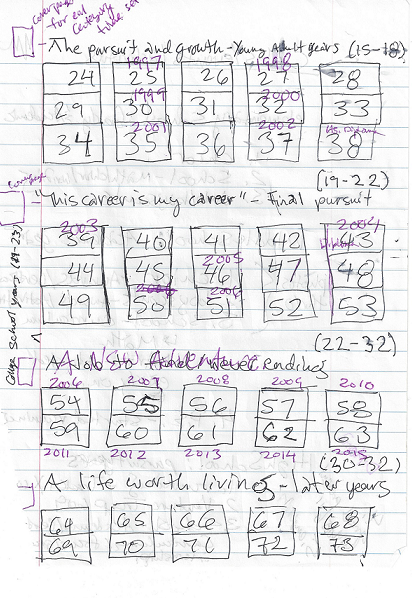 Coverpage
for each
Category
time set
The pursuit and growth - Young Adult years (15-18)
1997 1998
24 25 26 27 28
1999 2000
29 30 31 32 33
2001 2002
34 35 36 37 38
(19-22)
Coverpage
"This career is my career" - Final pursuit
2003 2004
39 40 41 42 43
2005
44 45 46 47 48
2006
49 50 51 52 53
College School years (19-23)
(22-32)
A New
endings
2006 2007 2008 2009 2010
54 55 56 57 58
59 60 61 62 63
2011 2012 2013 2014 2015
(30-32)
A life worth living - later years
64 65 66 67 68
69 70 71 72 73